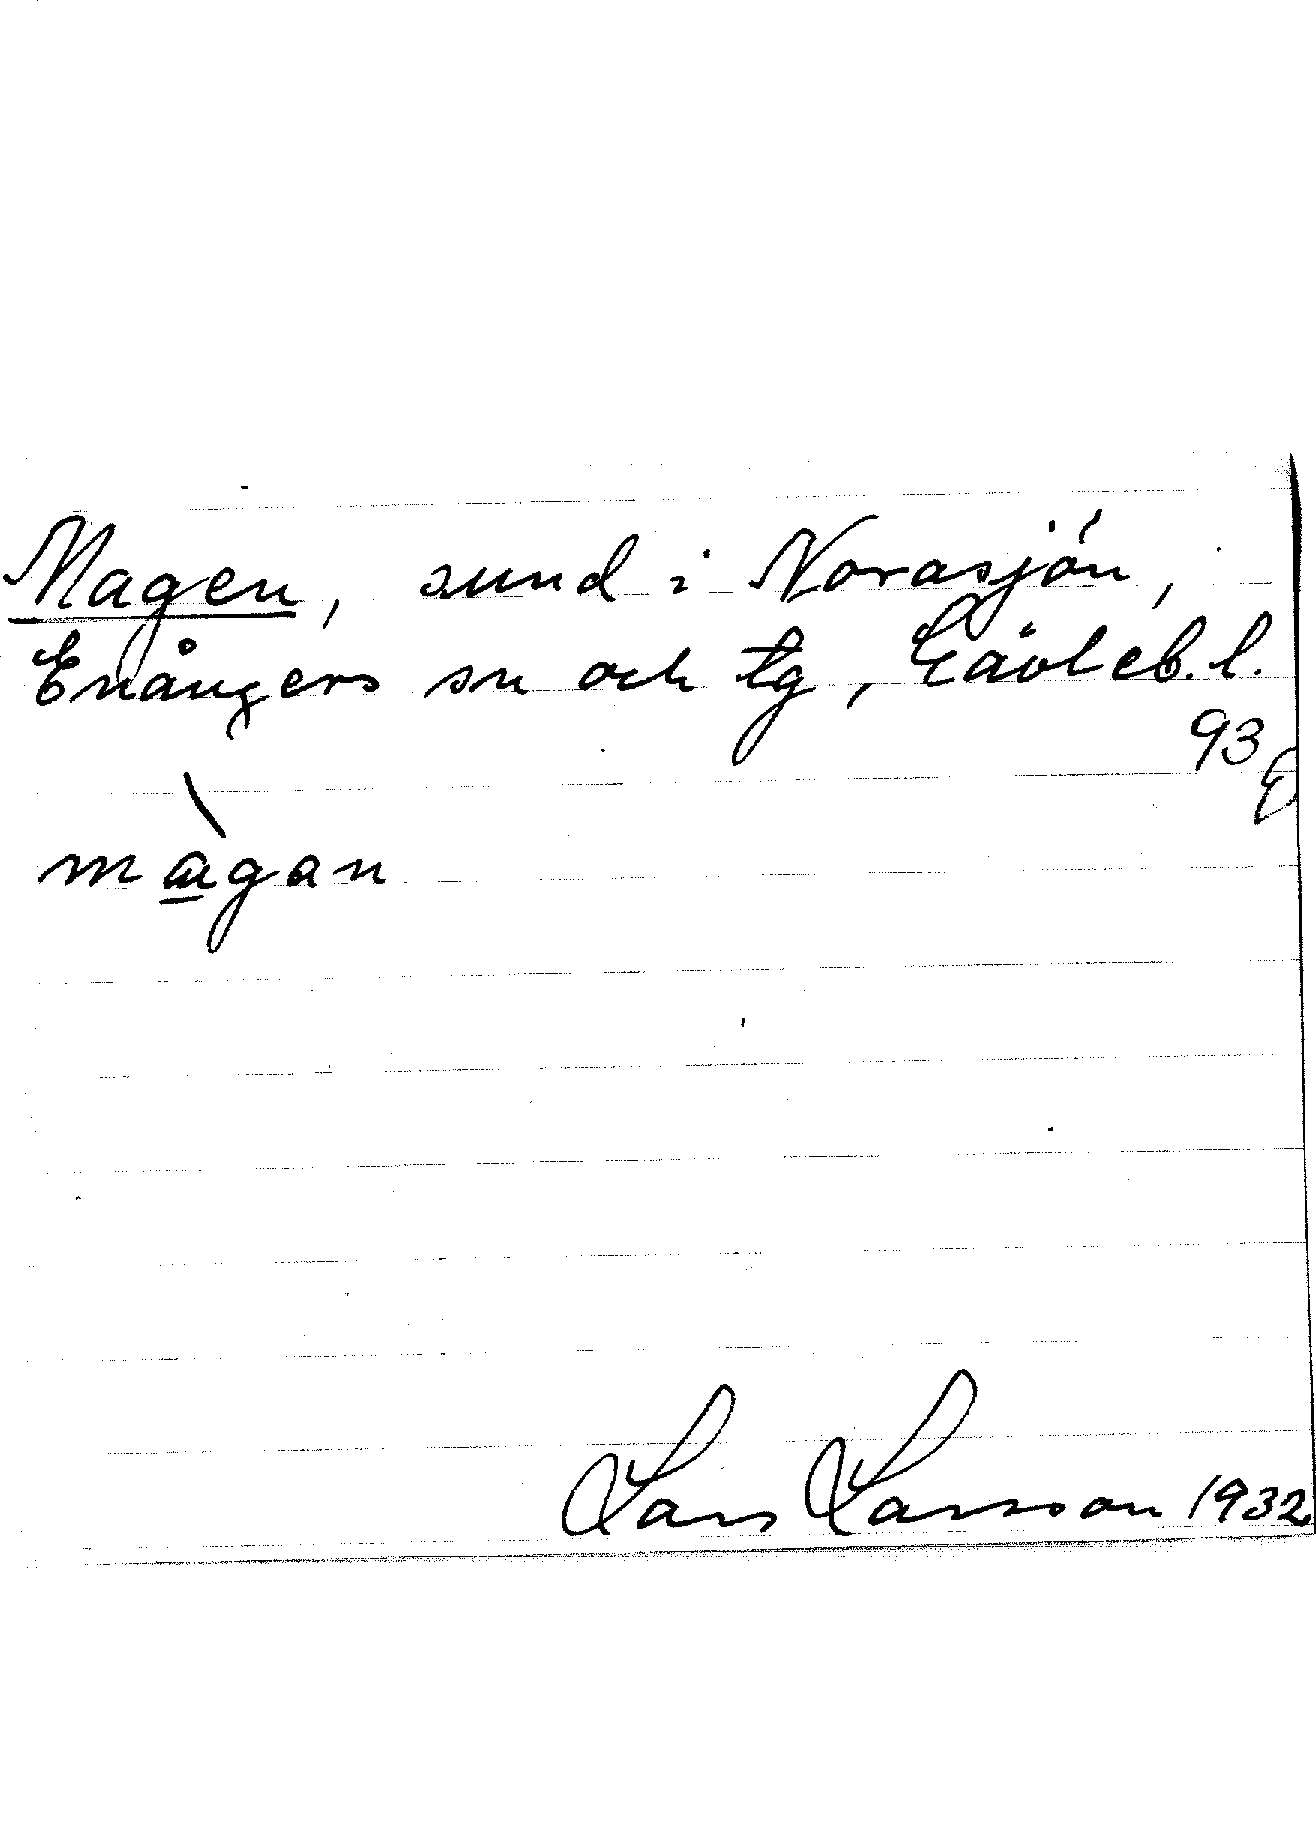 Magen, sund i Norasjön,
Enångers sn och tg, Gävleb. l.
93
magan
Lars Larsson 1932